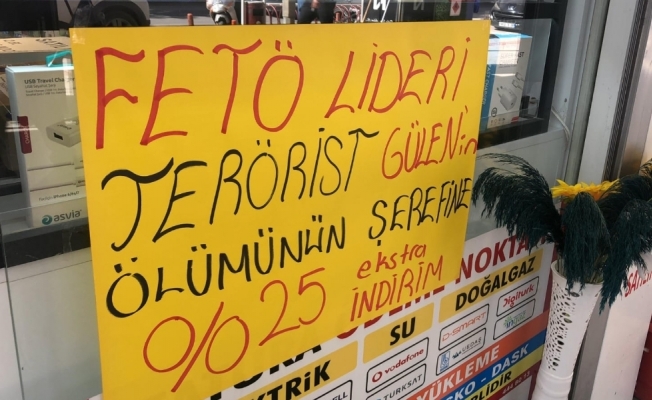 FETÖ LİDERİ
TERÖRİST GÜLENİn
ÖLÜMÜNÜN ŞEREFİNE
%25 ekstra
İNDİRİM
USB Travel
asvia
ÖDEME NOKTA
SU
DOĞALGAZ
vodafone
D-SMART
Digiturk
TÜRKSAT
TRİK
YÜKLEME
KO - DASK